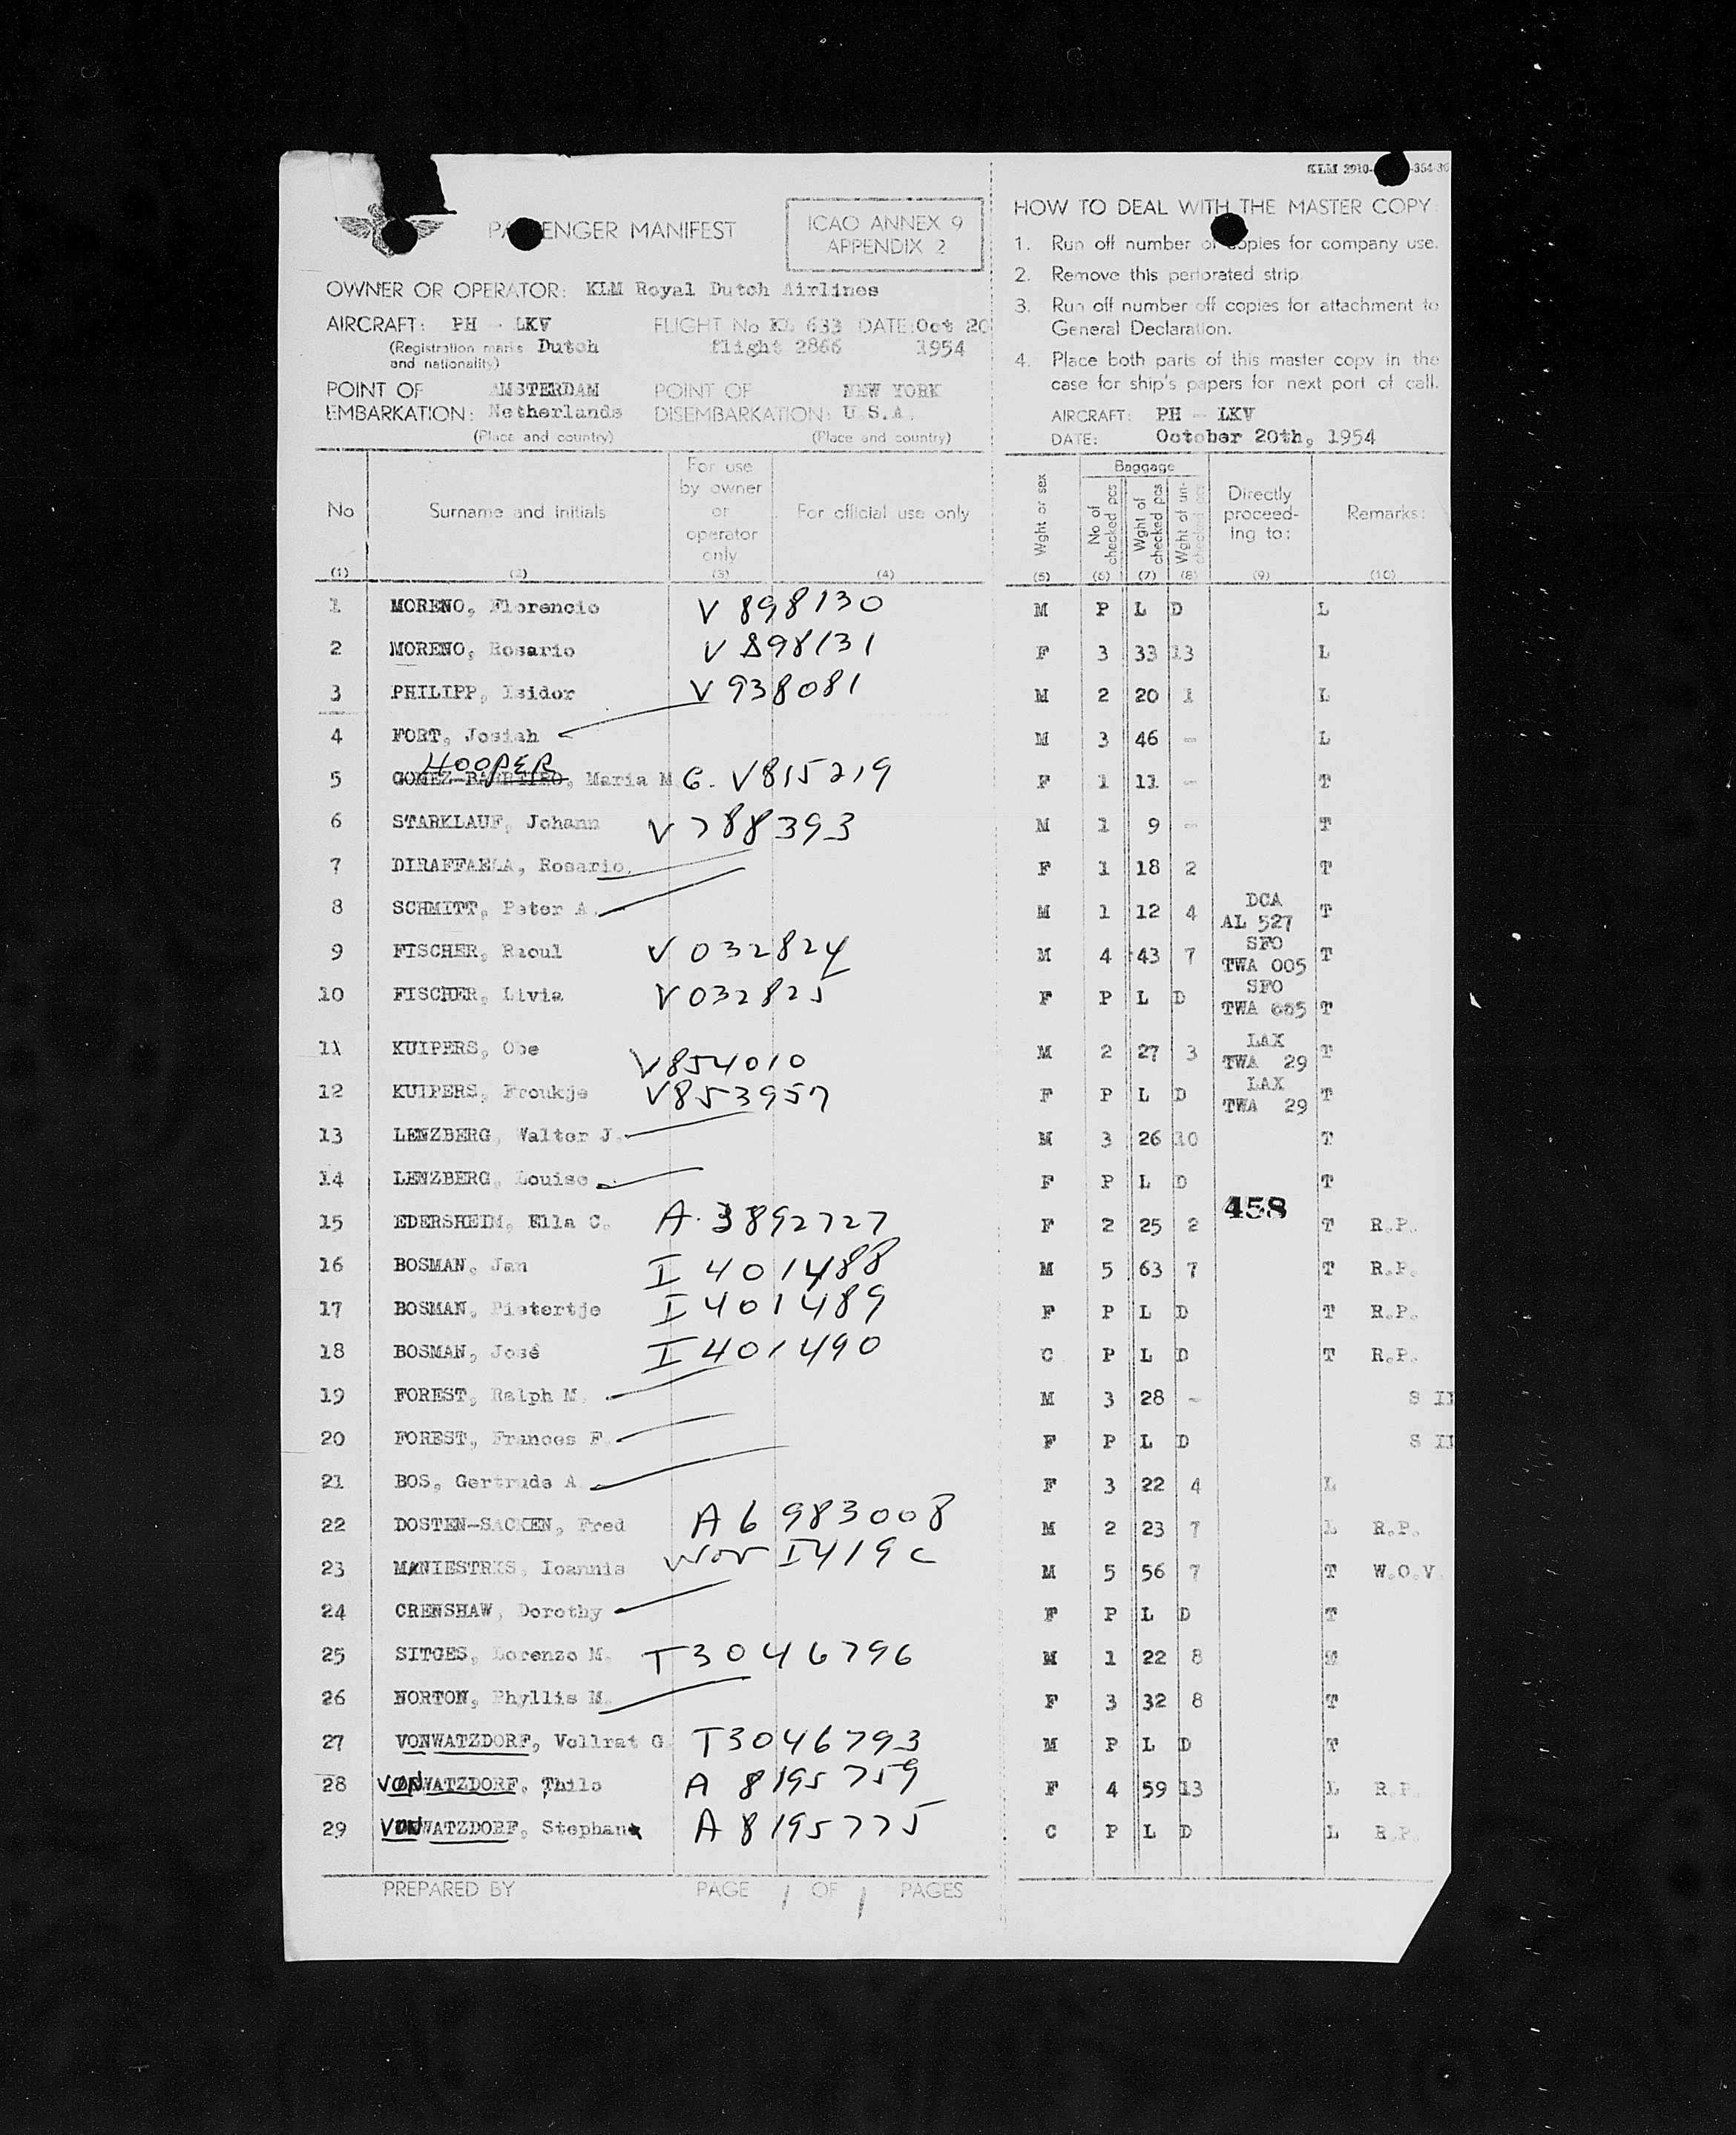 KLM 2910- -354-30
PASSENGER MANIFEST
ICAO ANNEX 9
APPENDIX 2
OWNER OR OPERATOR: KLM Royal Dutch Airlines
AIRCRAFT: PH - LKV FLIGHT No KL 633 DATE: Oct 20
(Registration marks Dutch flight 2866 1954
and nationality)
POINT OF AMSTERDAM POINT OF NEW YORK
EMBARKATION: Netherlands DISEMBARKATION: U.S.A.
(Place and country) (Place and country)
HOW TO DEAL WITH THE MASTER COPY:
1. Run off number of copies for company use.
2. Remove this perforated strip.
3. Run off number off copies for attachment to
General Declaration.
4. Place both parts of this master copy in the
case for ship's papers for next port of call.
AIRCRAFT: PH - LKV
DATE: October 20th, 1954
No Surname and initials For use by owner or operator only For official use only Wght or sex Baggage No of checked pcs Wght of checked pcs Wght of un-checked pcs Directly proceed-ing to: Remarks:
(1) (2) (3) (4) (5) (6) (7) (8) (9) (10)
1 MORENO, Florencio V 898130 M P L D L
2 MORENO, Rosario V 898131 F 3 33 13 L
3 PHILIPP, Isidor V 938081 M 2 20 1 L
4 FORT, Josiah M 3 46 - L
HOOPER
5 GOMEZ-BARREIRO, Maria M G. V815219 F 1 11 - T
6 STARKLAUF, Johann V 788393 M 1 9 - T
7 DIRAFFAELA, Rosario. F 1 18 2 T
8 SCHMITT, Peter A. M 1 12 4 DCA AL 527 T
9 FISCHER, Raoul V 032824 M 4 43 7 SFO TWA 005 T
10 FISCHER, Livia V 032825 F P L D SFO TWA 005 T
11 KUIPERS, Obe V854010 M 2 27 3 LAX TWA 29 T
12 KUIPERS, Froukje V853957 F P L D LAX TWA 29 T
13 LENZBERG, Walter J. M 3 26 10 T
14 LENZBERG, Louise F P L D T
458
15 EDERSHEIM, Ella C. A. 3892727 F 2 25 2 T R.P.
16 BOSMAN, Jan I 401488 M 5 63 7 T R.P.
17 BOSMAN, Pietertje I 401489 F P L D T R.P.
18 BOSMAN, José I 401490 C P L D T R.P.
19 FOREST, Ralph M. M 3 28 - S II
20 FOREST, Frances F. F P L D S II
21 BOS, Gertrude A F 3 22 4 L
22 DOSTEN-SACKEN, Fred A 6 983008 M 2 23 7 L R.P.
23 MANIESTRIS, Ioannis WOV I419C M 5 56 7 T W.O.V.
24 CRENSHAW, Dorothy F P L D T
25 SITGES, Lorenzo M. T3046796 M 1 22 8 M
26 NORTON, Phyllis M. F 3 32 8 T
27 VONWATZDORF, Vollrat G. T3046793 M P L D T
28 VONWATZDORF, Thilo A 8195759 F 4 59 13 L R.P.
29 VONWATZDORF, Stephan A 8195775 C P L D L R.P.
PREPARED BY PAGE 1 OF 1 PAGES